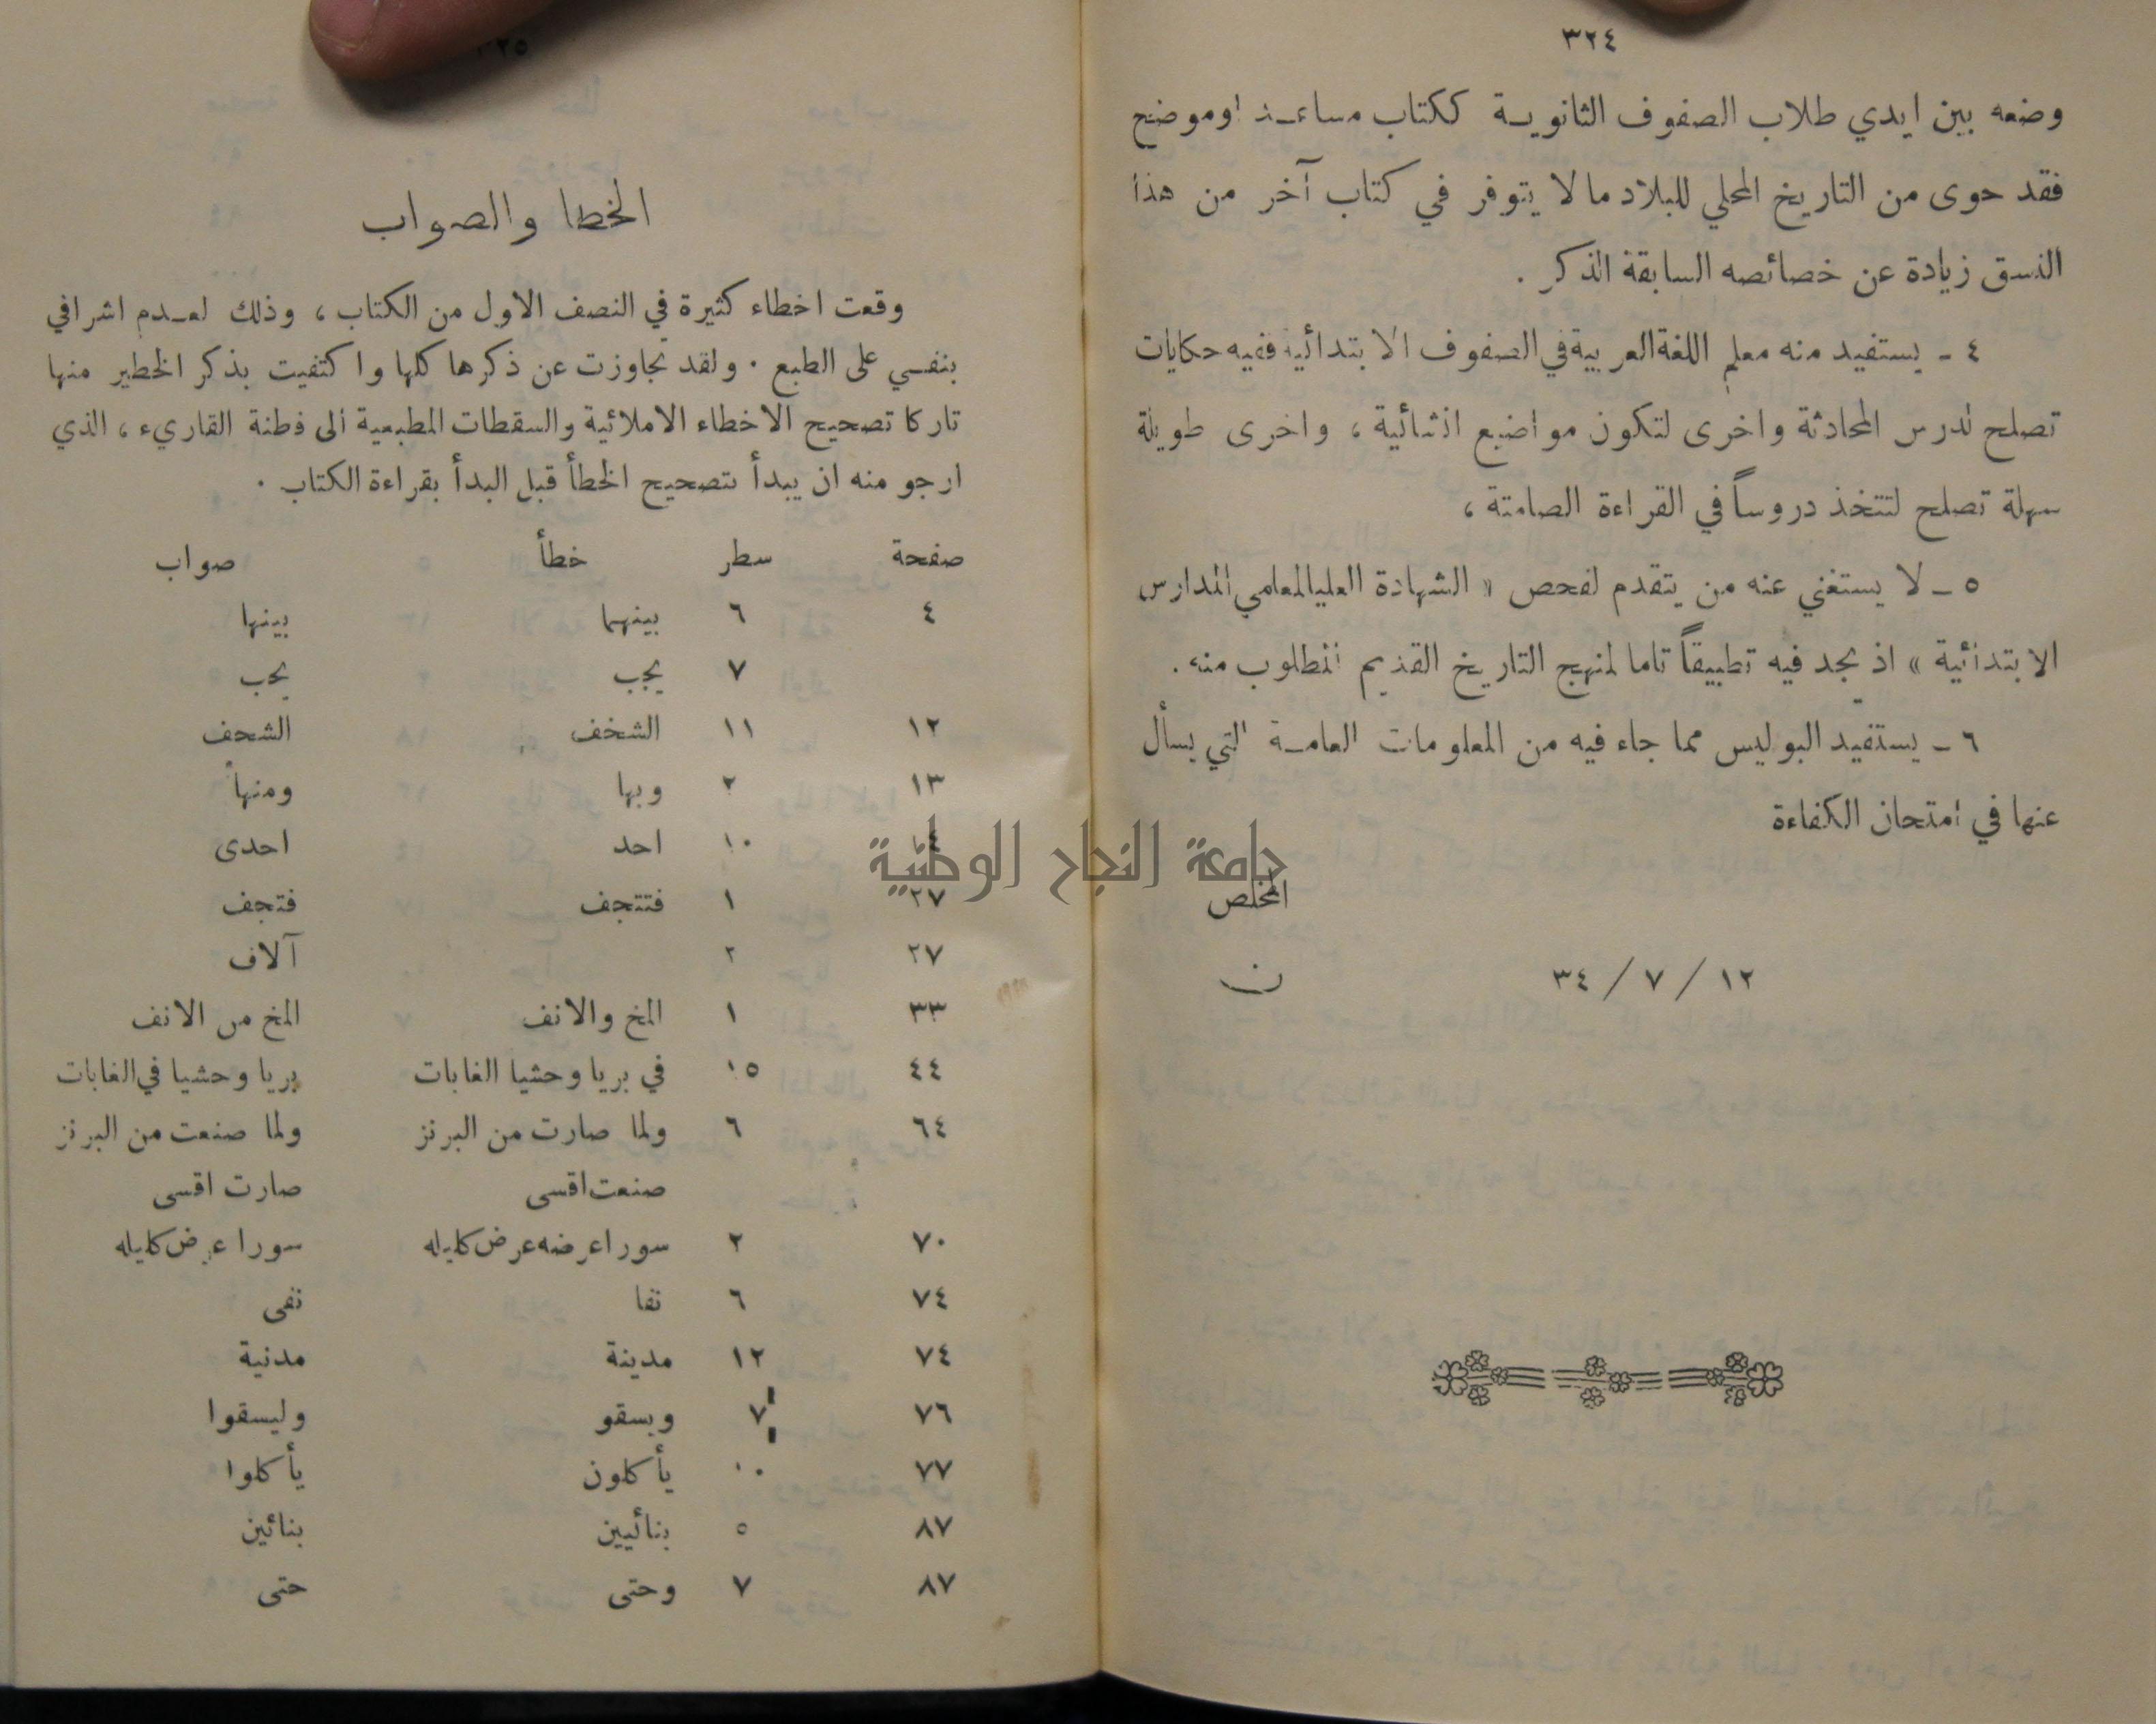 ٣٢٤
وضعه بين ايدي طلاب الصفوف الثانويـة ككتاب مساعـد اوموضح
فقد حوى من التاريخ المحلي للبلاد مالا يتوفر في كتاب آخر من هذا
النسق زيادة عن خصائصه السابقة الذكر .
٤ ـ يستفيد منه معلم اللغة العربية في الصفوف الابتدائية ففيه حكايات
تصلح لدرس المحادثة واخرى لتكون مواضيع انشائية ، واخرى طويلة
سهلة تصلح لتتخذ دروساً في القراءة الصامتة ،
٥ ـ لا يستغني عنه من يتقدم لفحص « الشهادة العليا لمعلمي المدارس
الابتدائية » اذ يجد فيه تطبيقاً تاما لمنهج التاريخ القديم المطلوب منه .
٦ ـ يستفيد البوليس مما جاء فيه من المعلومات العامـة التي يسأل
عنها في امتحان الكفاءة
المخلص
١٢ / ٧ / ٣٤
ن
جامعة النجاح الوطنية
٣٢٥
الخطا والصواب
وقعت اخطاء كثيرة في النصف الاول من الكتاب ، وذلك لعـدم اشرافي
بنفسي على الطبع . ولقد تجاوزت عن ذكرها كلها واكتفيت بذكر الخطير منها
تاركا تصحيح الاخطاء الاملائية والسقطات المطبعية الى فطنة القاريء ، الذي
ارجو منه ان يبدأ بتصحيح الخطأ قبل البدأ بقراءة الكتاب .
صفحة سطر خطأ صواب
٤ ٦ بينهما بينها
٧ يجب يحب
١٢ ١١ الشخف الشحف
١٣ ٢ وبها ومنها
١٤ ١٠ احد احدى
٢٧ ١ فتتجف فتجف
٢٧ ٢ آلاف
٣٣ ١ المخ والانف المخ من الانف
٤٤ ١٥ في بريا وحشيا الغابات بريا وحشيا في الغابات
٦٤ ٦ ولما صارت من البرنز ولما صنعت من البرنز
صنعت اقسى صارت اقسى
٧٠ ٢ سورا عرضه عرض كليله سورا عرض كليله
٧٤ ٦ نفا نفى
٧٤ ١٢ مدينة مدنية
٧٦ ٧ وبسقو وليسقوا
٧٧ ١٠ يأكلون يأكلوا
٨٧ ٥ بنائيين بنائين
٨٧ ٧ وحتى حتى